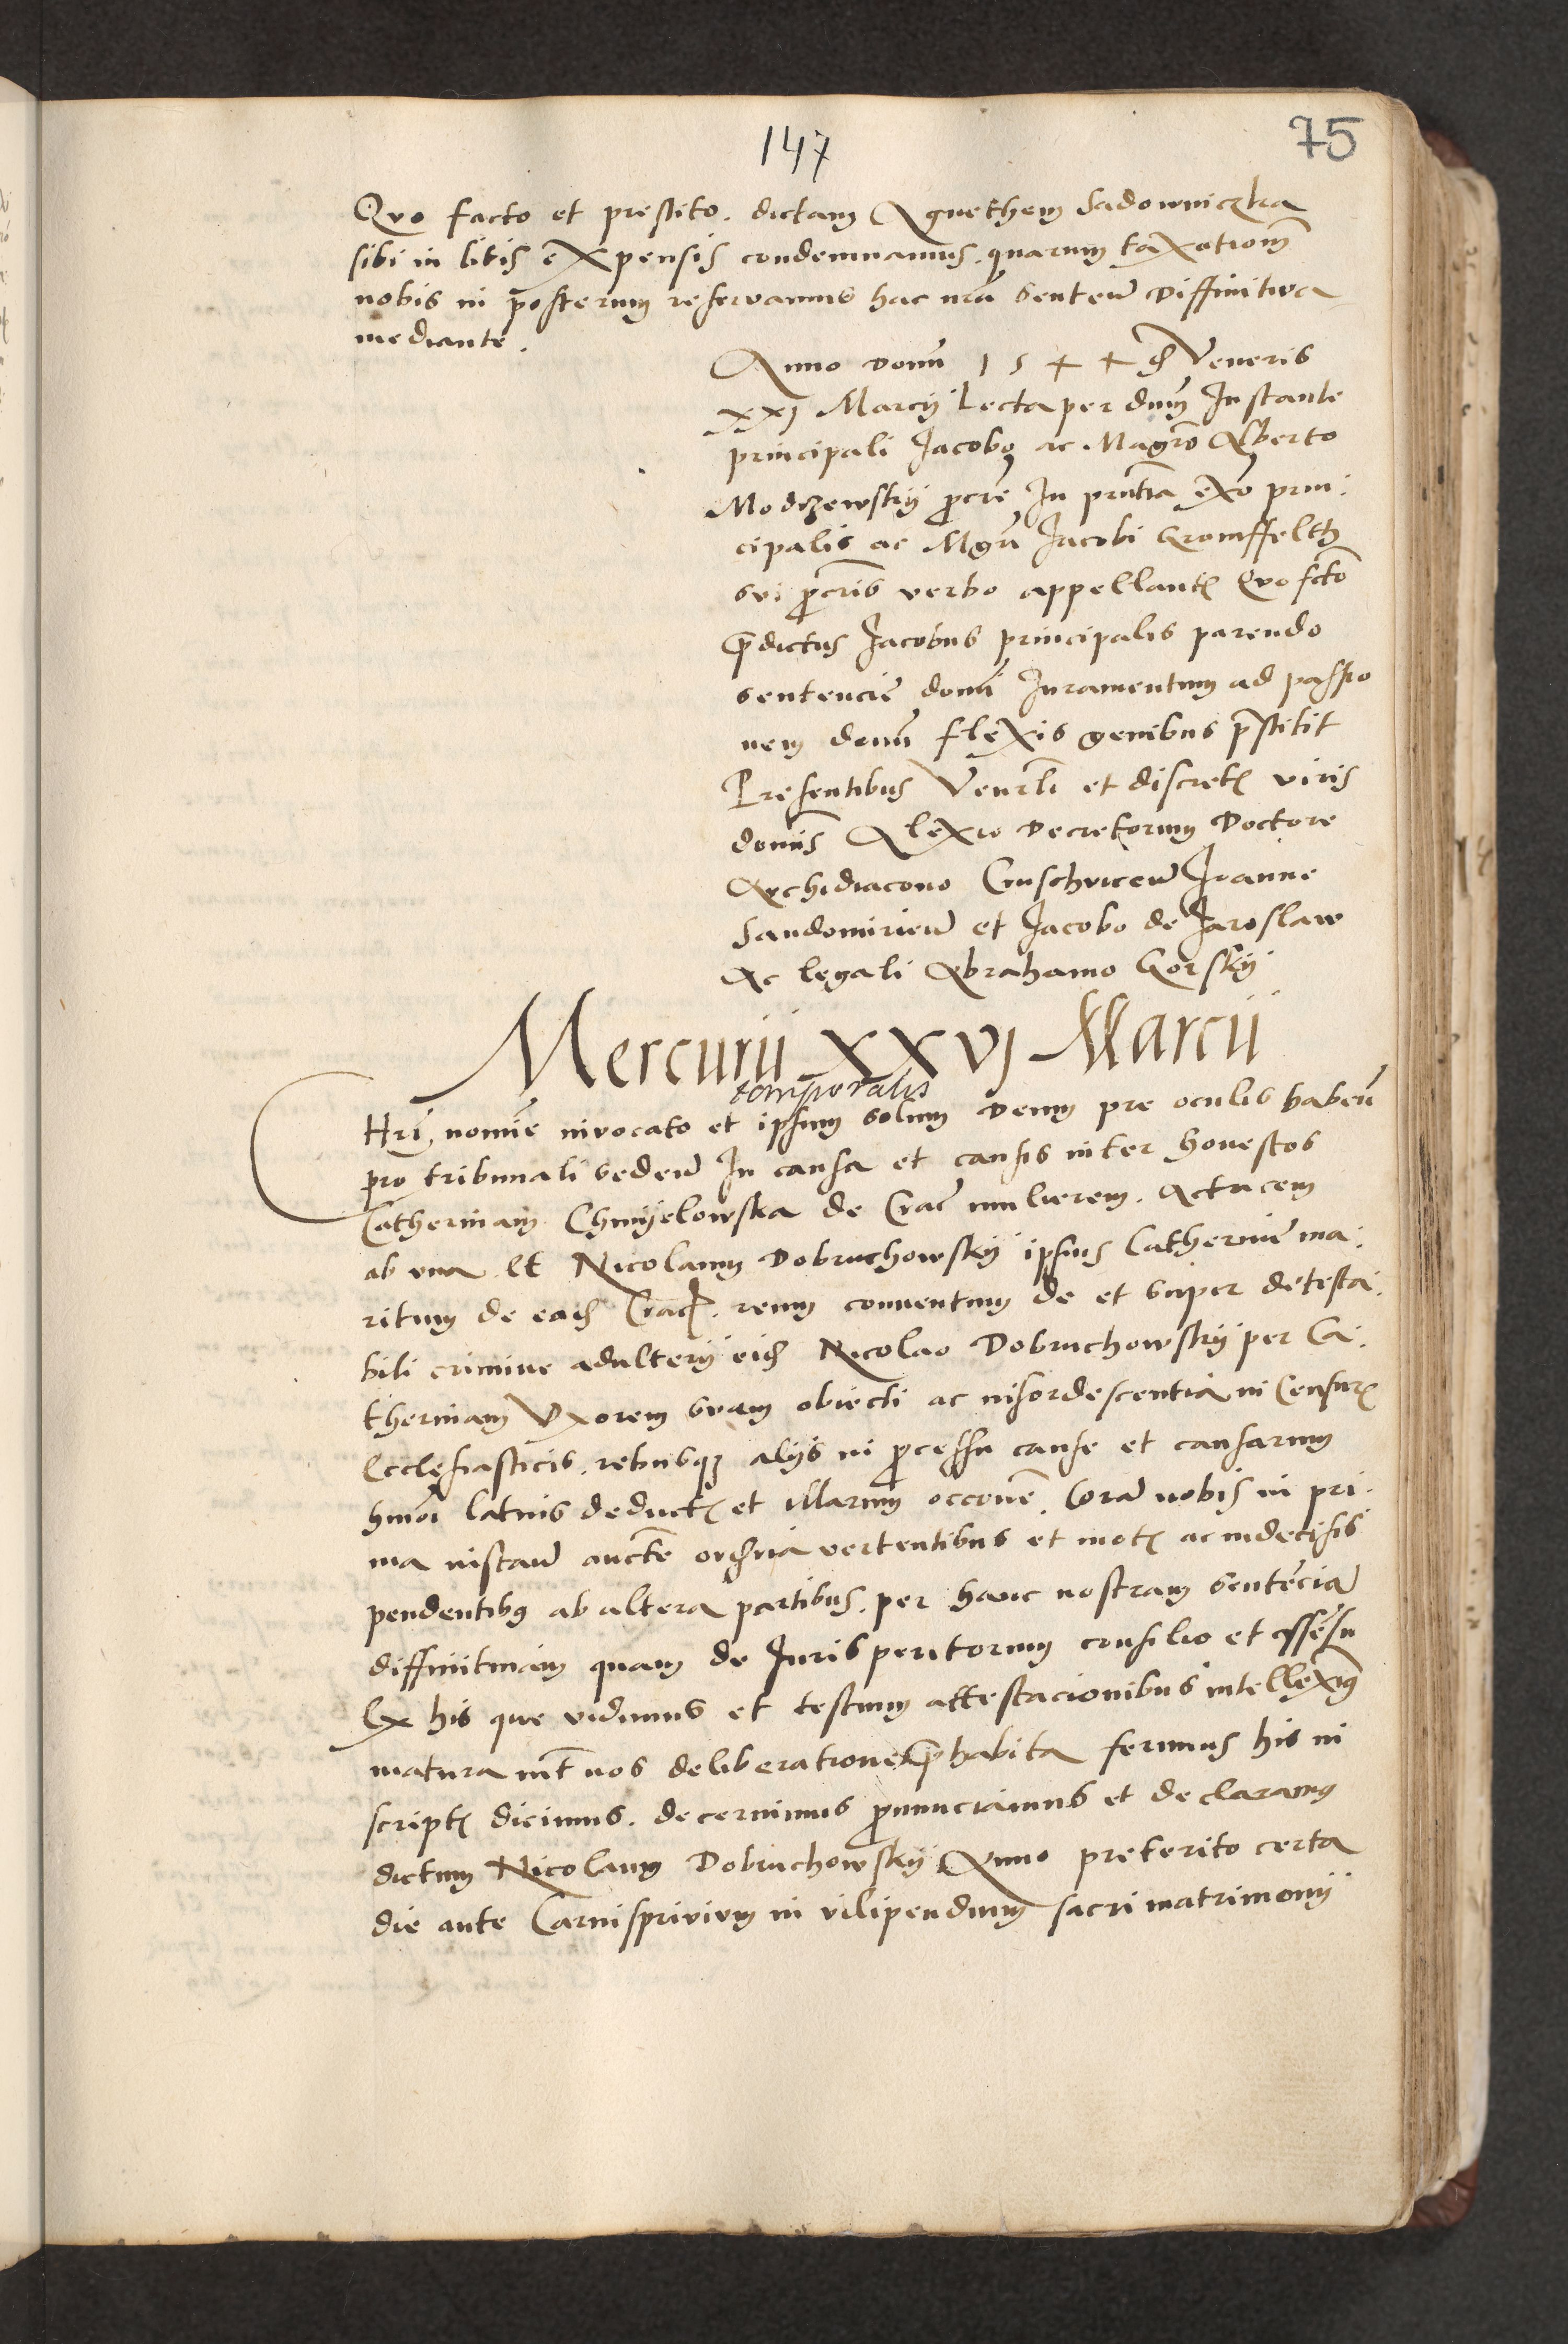 147
75
Quo facto et prestito. dictam Agnethem Sadowniczka
sibi in litis expensis condemnamus. quarum taxationem̄
nobis in posterum reservamus hac nr̄a senten̄ Diffinitiva
mediante.
Anno domn̄ 1544 d̄ Veneris
xxj Marcij Lecta per dnm̄ Instante
principali Jacobo ac Magr̄o Alberto
Modrzewskij ꝓcre In pn̄tia exo prin⸗
cipalis ac Mgrī Jacobi Gromffelth
sui ꝓcr̄is verbo appellantꝭ Quo fct̄o
p̄dictus Jacobus principalis parendo
sentencie domī Juramentum ad passio
nem domī flexis genibus p̄stitit
Presentibus Venrl̄i et discretꝭ viris
domīs Alexio Decretorum Doctore
Archidiacono Joanne
Sandomirien̄ et Jacobo de Jaroslaw
Ac legali Abrahamo Gorskij
Mercurii xxvj Marcii
temporalis
CHri, nomīe invocato et ipsum solum Deum pre oculis haben̄
pro tribunali seden̄ In causa et causis inter honestos
Catherinam Chmyelowska de Crac̄ mulierem. Actricem
ab una. Et Nicolaum Dobruchowskij ipsius Catherine ma⸗
ritum de ead̄ Crac̄. reum conventum de et super detesta⸗
bili crimine adulterij eid̄ Nicolao Dobruchowskij per Ca⸗
therinam Uxorem suam obiecti ac insordescentia in Censurꝭ
Ecclesiasticis. rebusqꝫ alijs in ꝓcessu cause et causarum
hmōi latius deductꝭ et illarum occōne. Corā nobis in pri⸗
ma instan̄ auctē ord̄ria vertentibus et motꝭ ac indecisis
pendentibꝰ ab altera partibus. per hanc nostram sentēciā
diffinitivam quam de Jurisperitorum consilio et assēsu
Ex his que vidimus et testium attestacionibus intelleximꝰ
matura int̄ nos deliberatione p̄habita ferimus his in
scriptꝭ dicimus. decernimus ꝓnunciamus et declaramꝰ
dictum Nicolaum Dobruchowskij Anno preterito certa
die ante Carnisprivium in vilipendium sacri matrimonij